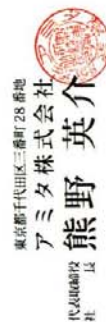 東京都千代田区三番町28番地
アミタ株式会社
代表取締役
社長
熊野英介